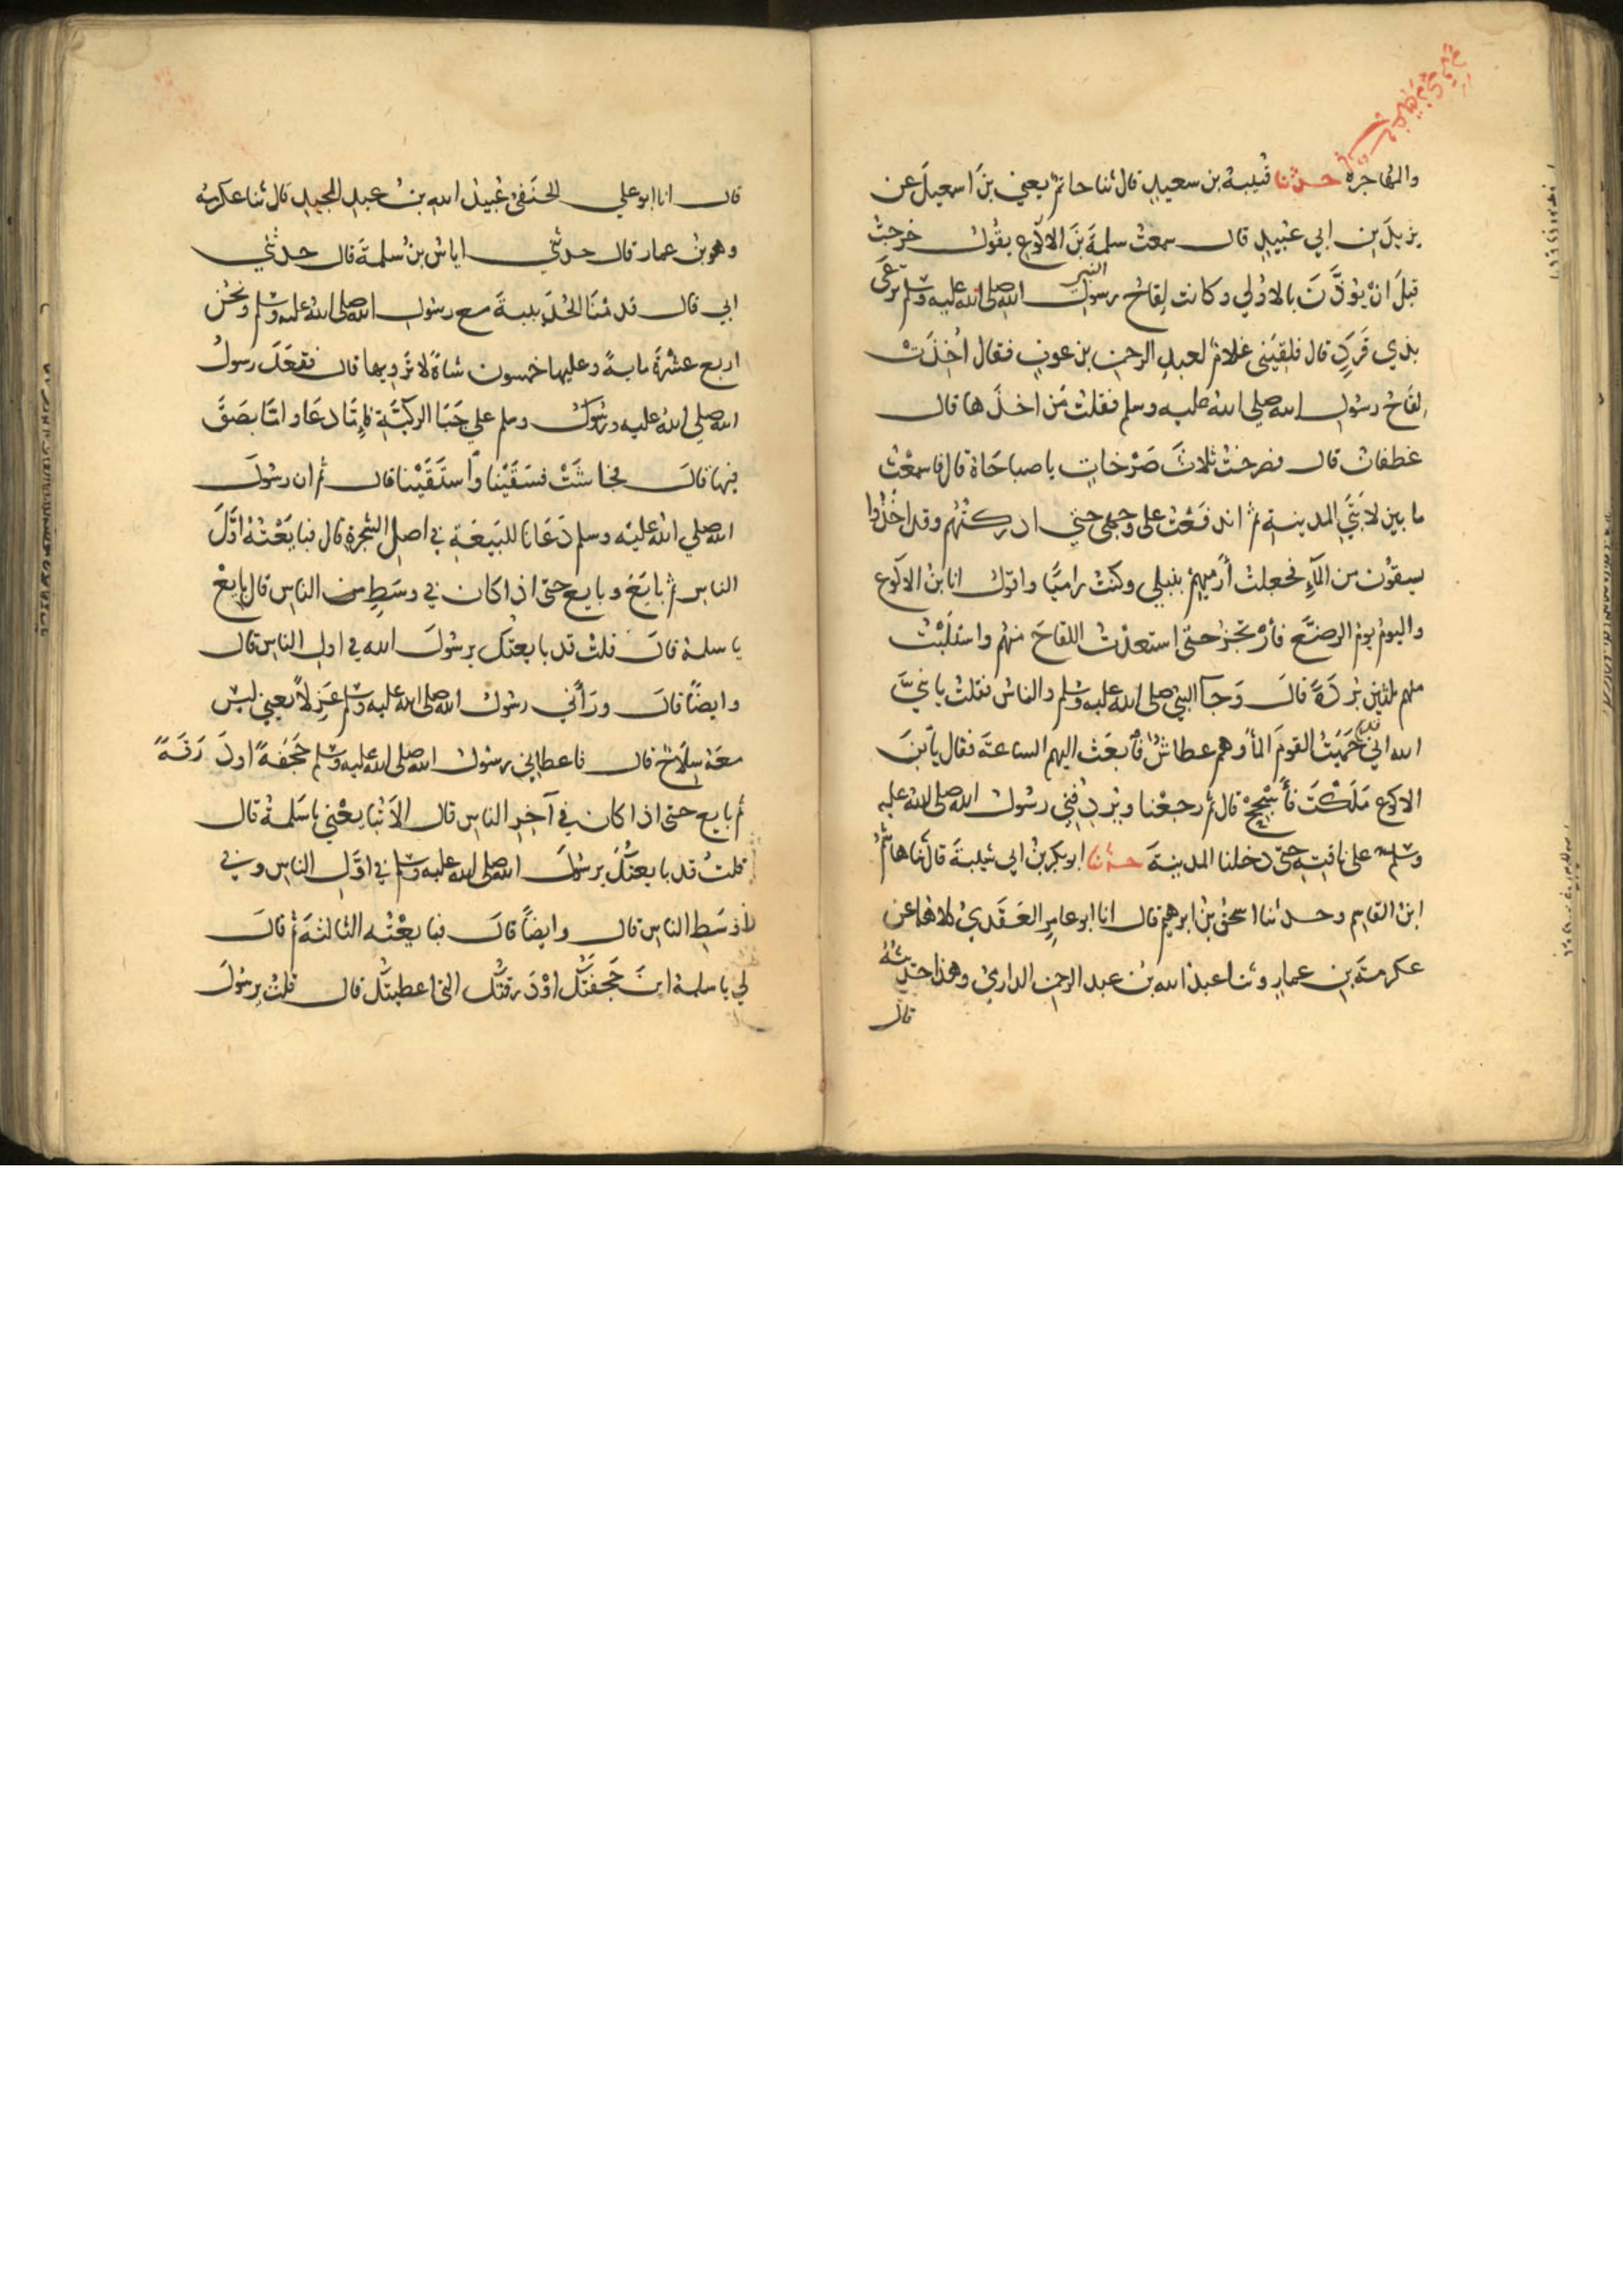 والمهاجره حدثنا قُتيبةُ بن سعيدٍ قال ثنا حاتمٌ يعني بنَ اسمعيلَ عن
يزيدَ بنِ ابي عُبيدٍ قال سمعتُ سلمةَ بنَ الاكوع يقولُ خرجتُ
قبلَ انْ يُوذَّنَ بالاولي وكانت لِقاحُ رسولِ الله صلى الله عليه وسلم تَرعَى
النبي
بذي قَرَدٍ قال فلقيَني غلامٌ لعبدِ الرحمنِ بن عوفٍ فقال اُخِذَتْ
لِقاحُ رسولِ الله صلي اللهُ عليه وسلم فقلتُ مَن اخذَها قال
غطفانُ قال فصرختُ ثلاثَ صَرْخاتٍ يا صباحَاهْ قال فاسمعْتُ
ما بين لابَتَيِ المدينةِ ثم اندفَعْتُ على وجهي حتي ادركتُهُم وقد اخَذُوا
يسقوْن من المآءِ فجعلتُ أرميهِمْ بنبلي وكنتُ راميًا واقولُ انا بنُ الاكوع
واليومُ يومُ الرضَّع فأرْتجزُ حتّى استنقذتُ اللقاحَ منهم واستَلَبْتُ
منهم ثلثين بُرْدَةً قالَ وَجآ النبيُّ صلى الله عليه وسلم والناسُ فقلتُ يا نبيَّ
الله اني قد حَمَيْتُ القومَ المآ وهم عطاشٌ فابعَث اليهم الساعةَ فقال يا بنَ
الاكوع مَلَكْتَ فأسْجِحْ قال ثم رجعْنا ويُرْدِفُني رسُولُ الله صلى الله عليه
وسلم على ناقتِهِ حتّى دخلنا المدينةَ حدثنا ابو بكر بنُ ابي شيبةَ قال ثنا هاشمُ
ابنُ القاسِم وحدثنا اسحقُ بنُ ابرهيم قال انا ابو عامِرٍ العَقَديُّ كلاهما عن
عكرمةَ بنِ عمارٍ وثنا عبدُ الله بنُ عبد الرحمنِ الداريُّ وهذا حديثُهُ
قال
قال انا ابو علي الحنَفيُّ عُبيدُ اللهِ بنُ عبدِ المجيدِ قال ثنا عكرمه
وهو بنُ عمار قال حدثني اياسُ بنُ سلمةَ قال حدثني
ابي قال قدمْنَا الحُدَيبيةَ مع رسُولِ الله صلى الله عليه وسلم ونحنُ
اربع عشْرَةَ مايةً وعليها خمسون شاةً لا تُرْويها قال فقعَدَ رسولُ
الله صلي الله عليه وسلم علي جَبَا الرَكيَّةِ فإمَّا دعَا وامَّا بصَقَ
فيها قالَ فجاشَتْ فسَقَيْنا واستَقَيْنا قال ثم ان رسُولَ
الله صلي الله عليه وسلم دَعَانا للبَيْعَةِ في اصلِ الشجرةِ قال فبايَعْتُهُ اوَّلَ
الناسِ ثم بايَعَ وبايع حتى اذا كان في وسَطٍ من الناسِ قال بايعْ
يا سلمةُ قالَ قلتُ قد بايعتك يرسُولَ الله في اولِ الناس قال
وايضًا قالَ ورَأَني رسُولُ الله صلى الله عليه وسلم عَزِلًا يعني ليس
معَهُ سِلَاحٌ قال فاعطاني رسُولُ الله صلى الله عليه وسلم حَجَفةً او دَرَقَةً
ثم بايع حتى اذا كان في آخِرِ الناسِ قال الَا تُبايعُني يا سَلمةُ قال
قلتُ قد بايعتُكَ يرسُولَ الله صلى الله عليه وسلم في اوَّلِ الناسِ وفي
اوْسَطِ الناسِ قال وايضًا قالَ فبايعْتُه الثالثَةَ ثم قالَ
لي يا سلمة اينَ حَجَفَتُكَ اوْ دَرقتُكَ التي اعطيتُك قال قلتُ يرسُولَ